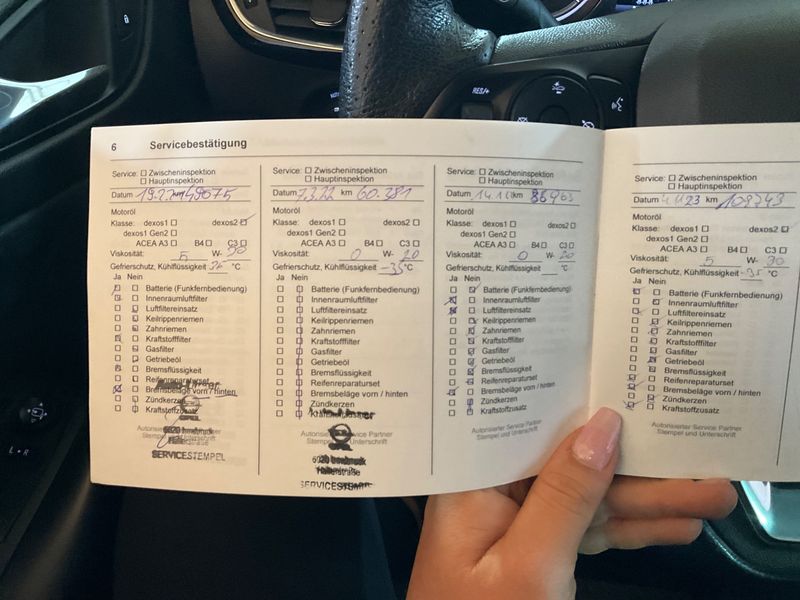 6 Servicebestätigung
Service: Zwischeninspektion
Hauptinspektion
Datum km 49075
Motoröl
Klasse: dexos1 dexos2
dexos1 Gen2
ACEA A3 B4 C3
Viskosität: 5 W- 30
Gefrierschutz, Kühlflüssigkeit °C
Ja Nein
Batterie (Funkfernbedienung)
Innenraumluftfilter
Luftfiltereinsatz
Keilrippenriemen
Zahnriemen
Kraftstofffilter
Gasfilter
Getriebeöl
Bremsflüssigkeit
Reifenreparaturset
Bremsbeläge vorn / hinten
Zündkerzen
Kraftstoffzusatz
Autorisierter
Stempel
OPEL
6020 Innsbruck
SERVICESTEMPEL
Service: Zwischeninspektion
Hauptinspektion
Datum 7.3.22 km 60.381
Motoröl
Klasse: dexos1 dexos2
dexos1 Gen2
ACEA A3 B4 C3
Viskosität: 0 W- 20
Gefrierschutz, Kühlflüssigkeit -35 °C
Ja Nein
Batterie (Funkfernbedienung)
Innenraumluftfilter
Luftfiltereinsatz
Keilrippenriemen
Zahnriemen
Kraftstofffilter
Gasfilter
Getriebeöl
Bremsflüssigkeit
Reifenreparaturset
Bremsbeläge vorn / hinten
Zündkerzen
Kraftstoffzusatz
Autorisierter Service Partner
Stempel und Unterschrift
6020 Innsbruck
Hallerstraße
SERVICESTEMPEL
Service: Zwischeninspektion
Hauptinspektion
Datum km
Motoröl
Klasse: dexos1 dexos2
dexos1 Gen2
ACEA A3 B4 C3
Viskosität: 0 W- 20
Gefrierschutz, Kühlflüssigkeit °C
Ja Nein
Batterie (Funkfernbedienung)
Innenraumluftfilter
Luftfiltereinsatz
Keilrippenriemen
Zahnriemen
Kraftstofffilter
Gasfilter
Getriebeöl
Bremsflüssigkeit
Reifenreparaturset
Bremsbeläge vorn / hinten
Zündkerzen
Kraftstoffzusatz
Autorisierter Service Partner
Stempel und Unterschrift
Service: Zwischeninspektion
Hauptinspektion
Datum km
Motoröl
Klasse: dexos1 dexos2
dexos1 Gen2
ACEA A3 B4 C3
Viskosität: 5 W- 30
Gefrierschutz, Kühlflüssigkeit -35 °C
Ja Nein
Batterie (Funkfernbedienung)
Innenraumluftfilter
Luftfiltereinsatz
Keilrippenriemen
Zahnriemen
Kraftstofffilter
Gasfilter
Getriebeöl
Bremsflüssigkeit
Reifenreparaturset
Bremsbeläge vorn / hinten
Zündkerzen
Kraftstoffzusatz
Autorisierter Service Partner
Stempel und Unterschrift
RES/+
L • R